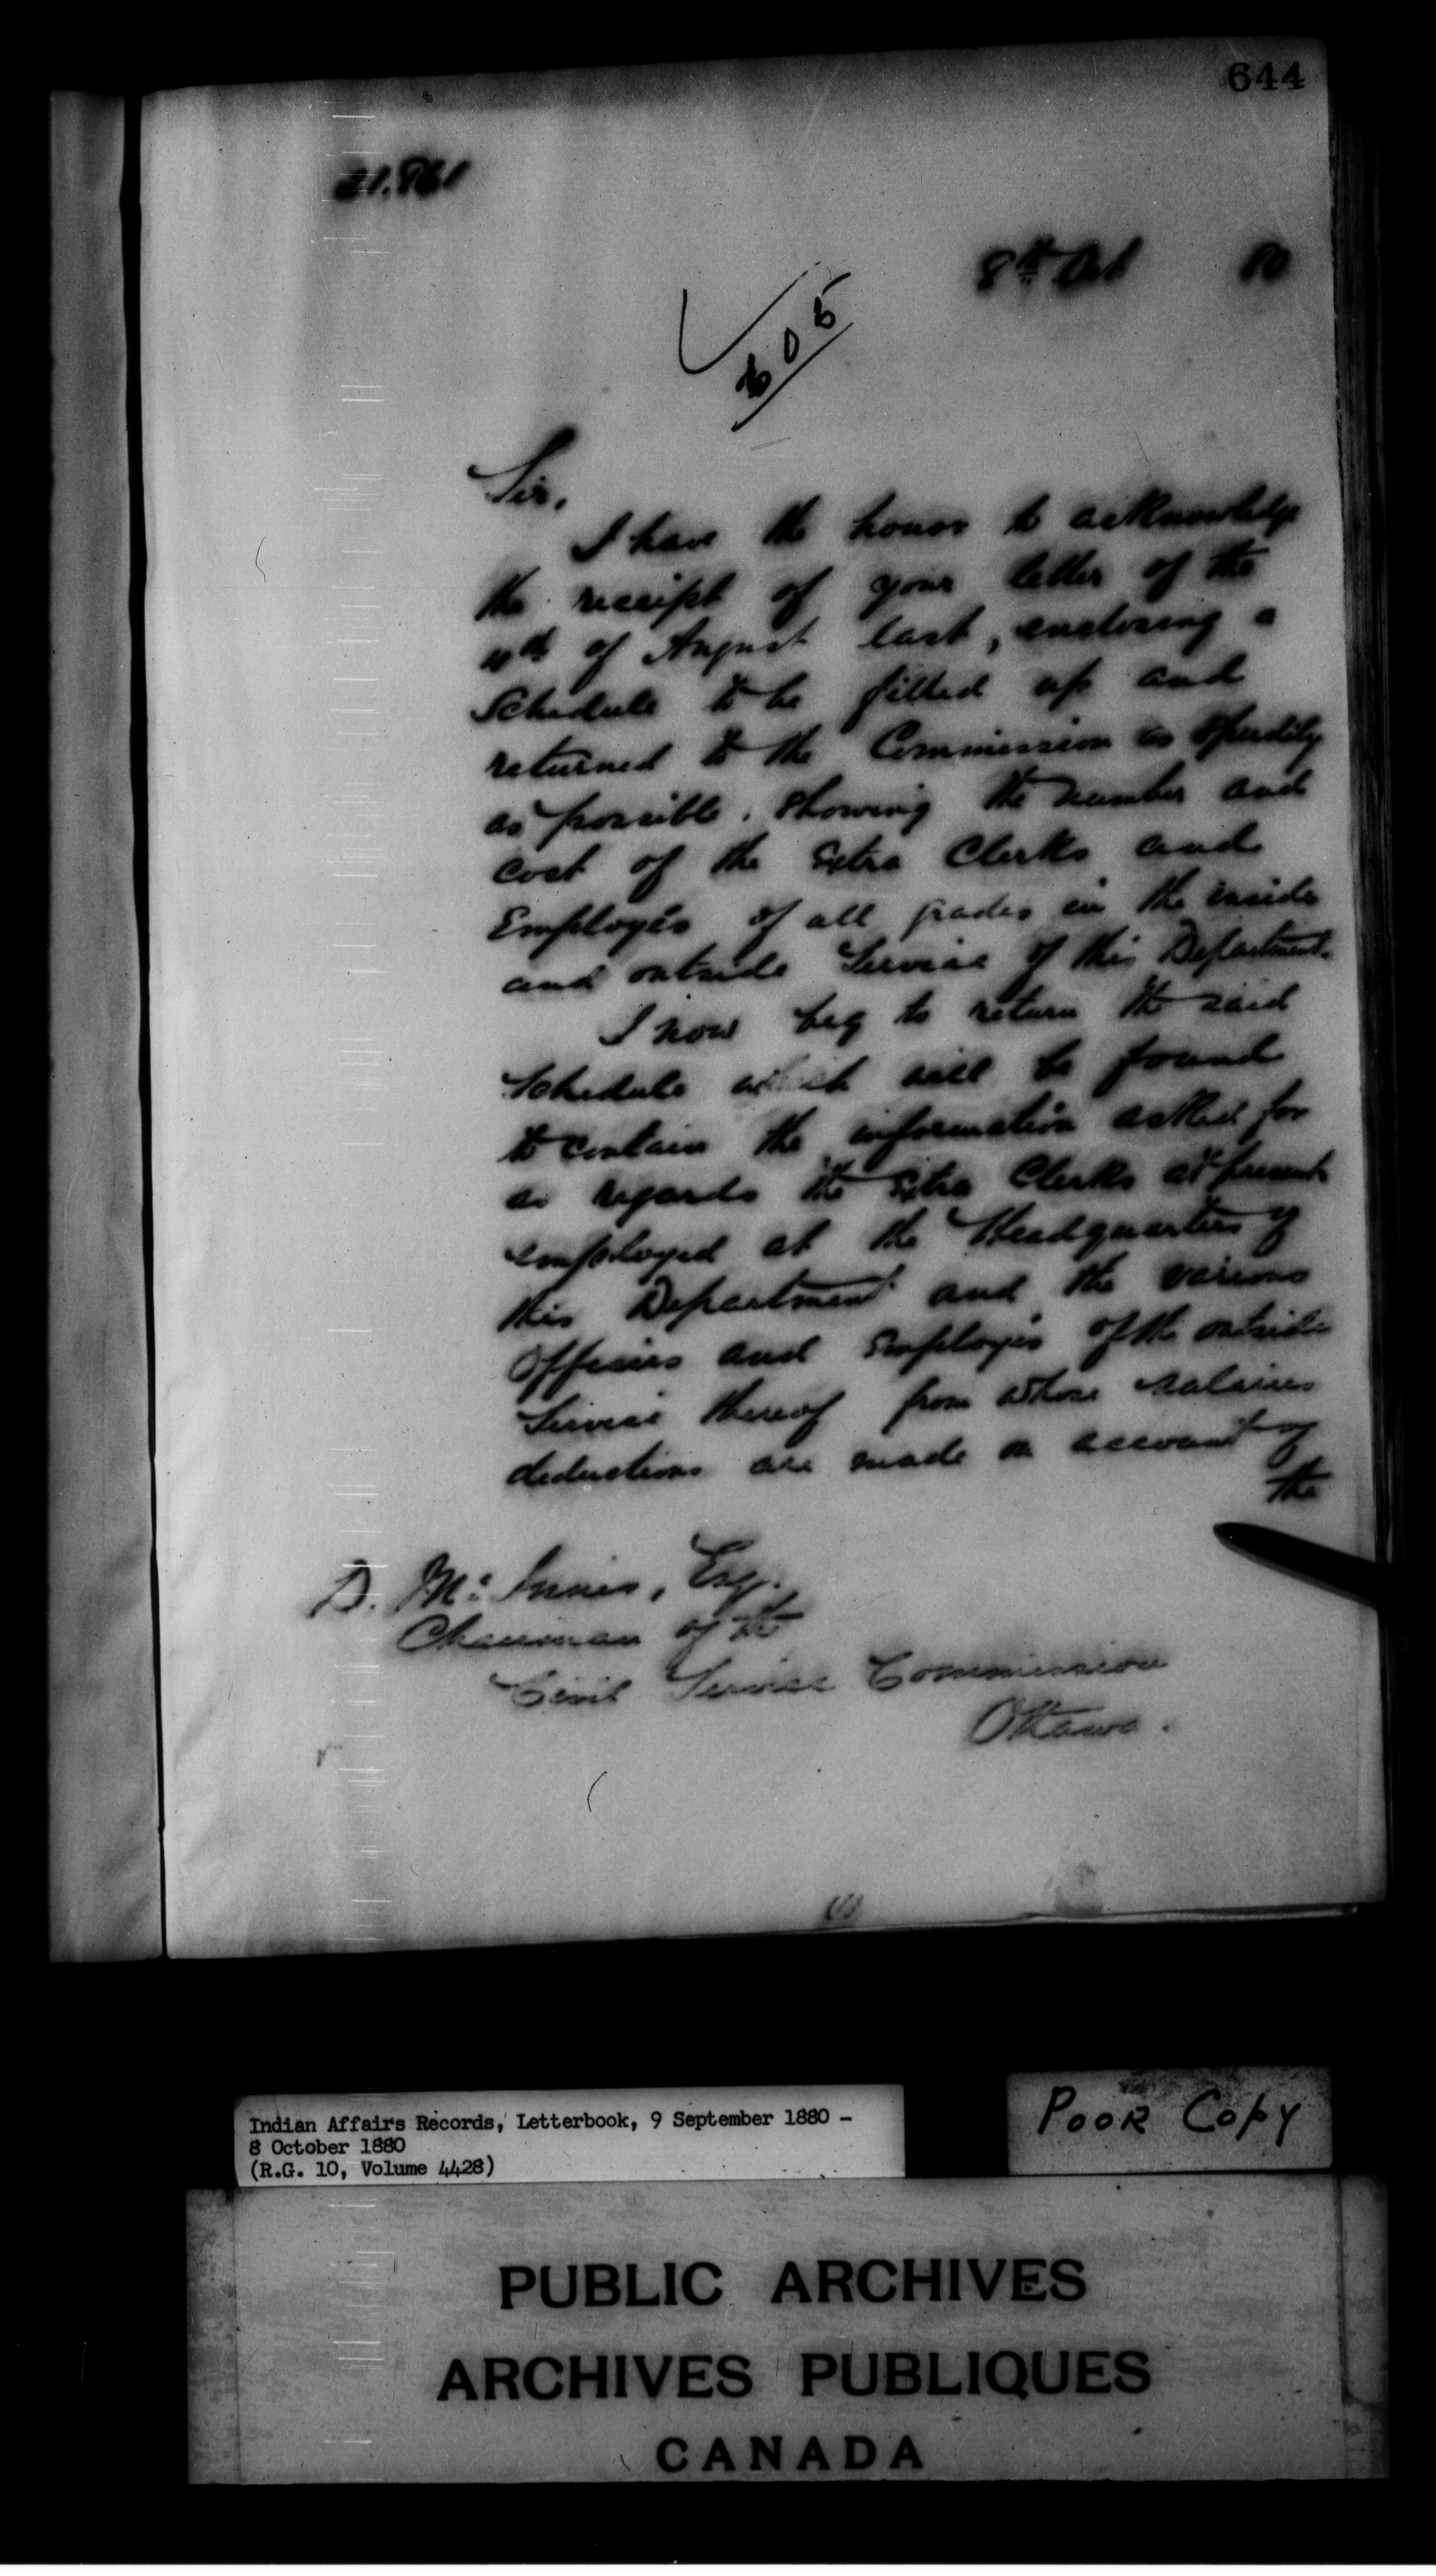 644
21.861
8th Oct 80
605
Sir,
I have the honor to acknowledge
the receipt of your letter of the
of August last, enclosing a
Schedule to be filled up and
returned to the Commission as speedily
as possible, showing the number and
cost of the Extra Clerks and
Employés of all grades in the inside
and outside Service of this Department.
I now beg to return the said
Schedule which will be found
to contain the information asked for
as regards the Extra Clerks at present
employed at the Headquarters of
this Department and the various
Officers and Employés of the outside
Service thereof from whose salaries
deductions are made on account of
the
D. McInnes, Esq.
Chairman of the
Civil Service Commission
Ottawa.
Indian Affairs Records, Letterbook, 9 September 1880 -
8 October 1880
(R.G. 10, Volume 4428)
POOR COPY
PUBLIC ARCHIVES
ARCHIVES PUBLIQUES
CANADA